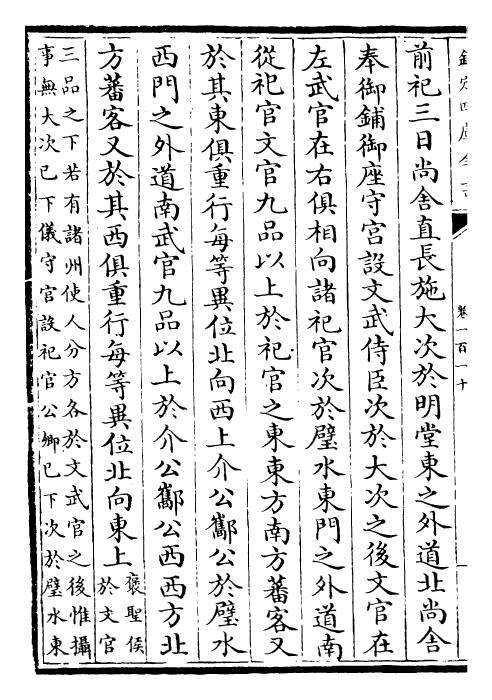 欽定四庫全書
卷一百一十
前祀三日尚舍直長施大次於明堂東之外道北尚舍
奉御鋪御座守宮設文武侍臣次於大次之後文官在
左武官在右俱相向諸祀官次於璧水東門之外道南
從祀官文官九品以上於祀官之東東方南方蕃客又
於其東俱重行每等異位北向西上介公酅公於璧水
西門之外道南武官九品以上於介公酅公西西方北
方蕃客又於其西俱重行每等異位北向東上褒聖侯於文官
三品之下若有諸州使人分方各於文武官之後惟攝
事無大次已下儀守官設祀官公卿已下次於璧水東